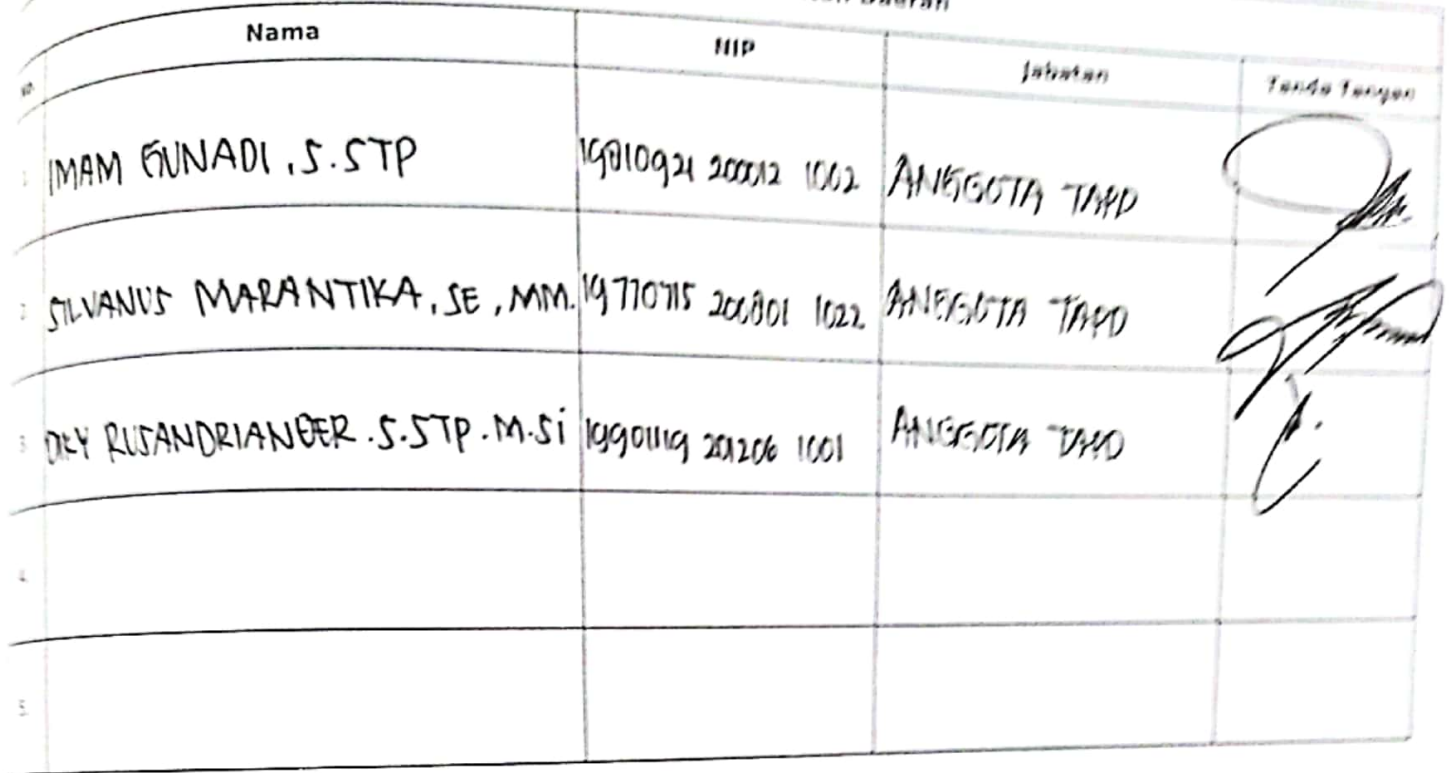 Daerah
No. Nama NIP Jabatan Tanda Tangan
1 IMAM GUNADI, S.STP 19810921 200012 1002 ANGGOTA TAPD
2 SILVANUS MARANTIKA, SE, MM. 19770715 200801 1022 ANGGOTA TAPD
3 RUSANDRIANDER.S.STP.M.Si 19901119 201206 1001 ANGGOTA TAPD
4.
5.